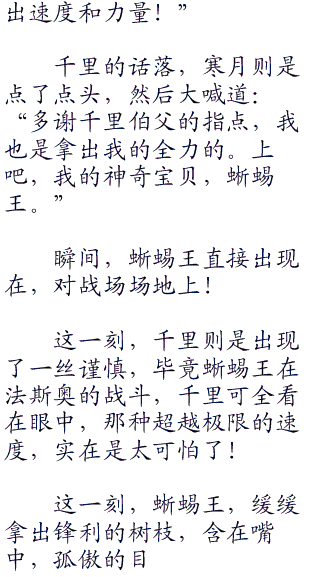 出速度和力量！”
千里的话落，寒月则是
点了点头，然后大喊道：
“多谢千里伯父的指点，我
也是拿出我的全力的。上
吧，我的神奇宝贝，蜥蜴
王。”
瞬间，蜥蜴王直接出现
在，对战场场地上！
这一刻，千里则是出现
了一丝谨慎，毕竟蜥蜴王在
法斯奥的战斗，千里可全看
在眼中，那种超越极限的速
度，实在是太可怕了！
这一刻，蜥蜴王，缓缓
拿出锋利的树枝，含在嘴
中，孤傲的目